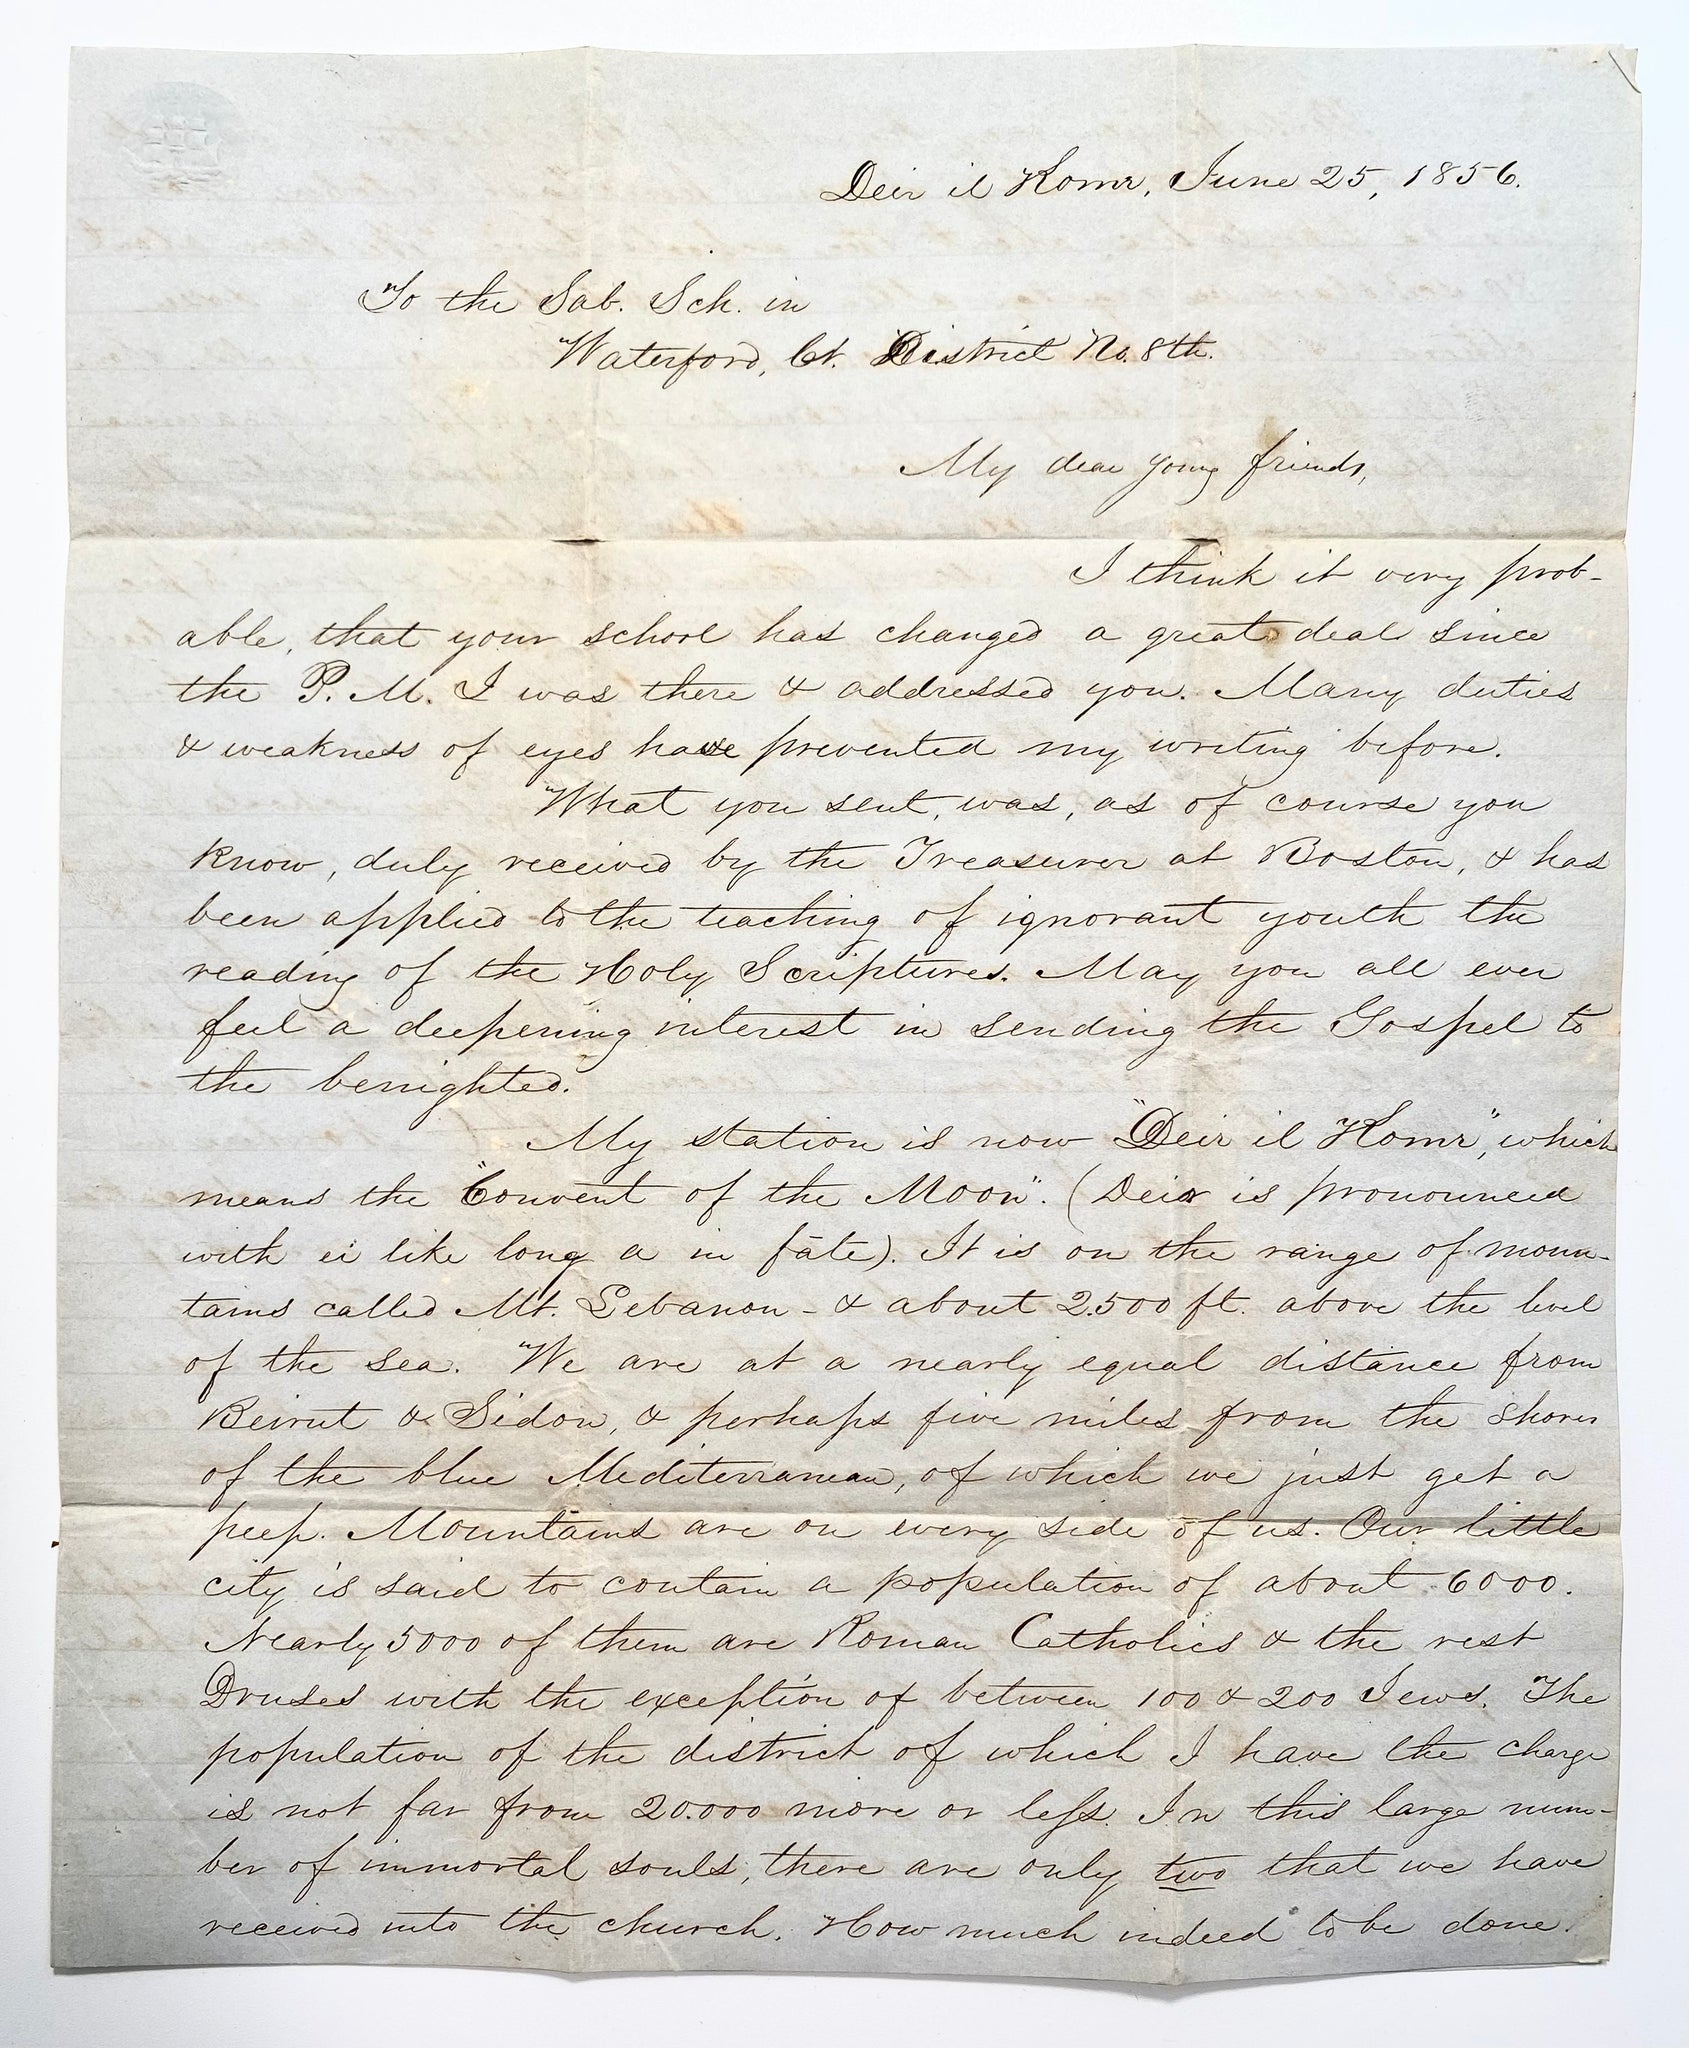 Deir il Komr, June 25, 1856.
To the Sab. Sch. in
Waterford, Ct. District No. 8th.
My dear young friends,
I think it very prob-
able, that your school has changed a great deal since
the P.M. I was there & addressed you. Many duties
& weakness of eyes have prevented my writing before.
What you sent, was, as of course you
know, duly received by the Treasurer at Boston, & has
been applied to the teaching of ignorant youth the
reading of the Holy Scriptures. May you all ever
feel a deepening interest in sending the Gospel to
the benighted.
My station is now "Deir il Komr", which
means the "Convent of the Moon". (Deir is pronounced
with ei like long a in fāte). It is on the range of moun-
tains called Mt. Lebanon - & about 2.500 ft. above the level
of the sea. We are at a nearly equal distance from
Beirut & Sidon, & perhaps five miles from the shores
of the blue Mediterranean, of which we just get a
peep. Mountains are on every side of us. Our little
city is said to contain a population of about 6000.
Nearly 5000 of them are Roman Catholics & the rest
Druses with the exception of between 100 & 200 Jews. The
population of the district of which I have the charge
is not far from 20.000 more or less. In this large num-
ber of immortal souls, there are only two that we have
received into the church. How much indeed to be done.